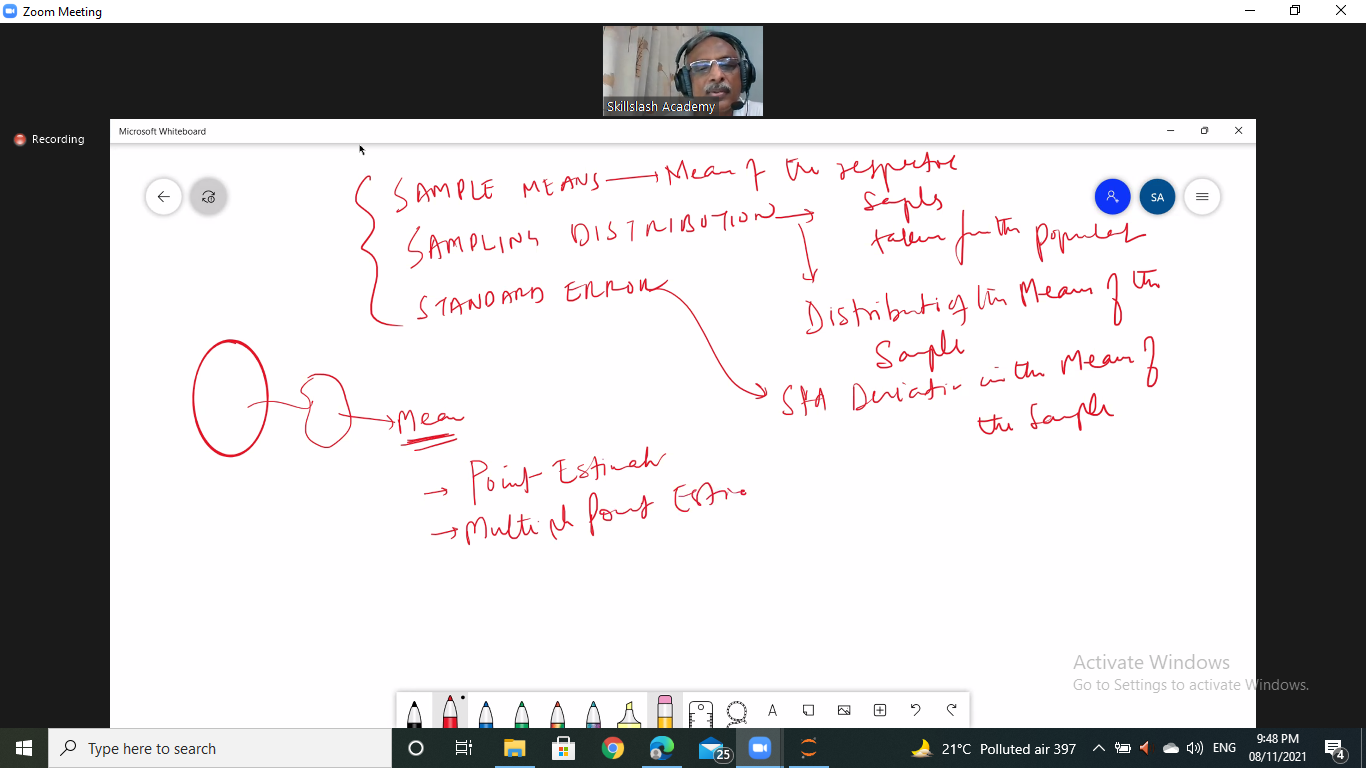 Zoom Meeting
Skillslash Academy
Recording
Microsoft Whiteboard
SA
SAMPLE MEANS → Mean of the respective
Samples
taken from the populat
SAMPLING DISTRIBUTION →
Distributi of the Mean of the
Sample
STANDARD ERROR
Std Deviation in the Mean of
the Sample
Mean
→ Point Estimate
→ Multiple Point Estim
A
Activate Windows
Go to Settings to activate Windows.
Type here to search
25
21°C Polluted air 397
ENG
9:48 PM
08/11/2021
4